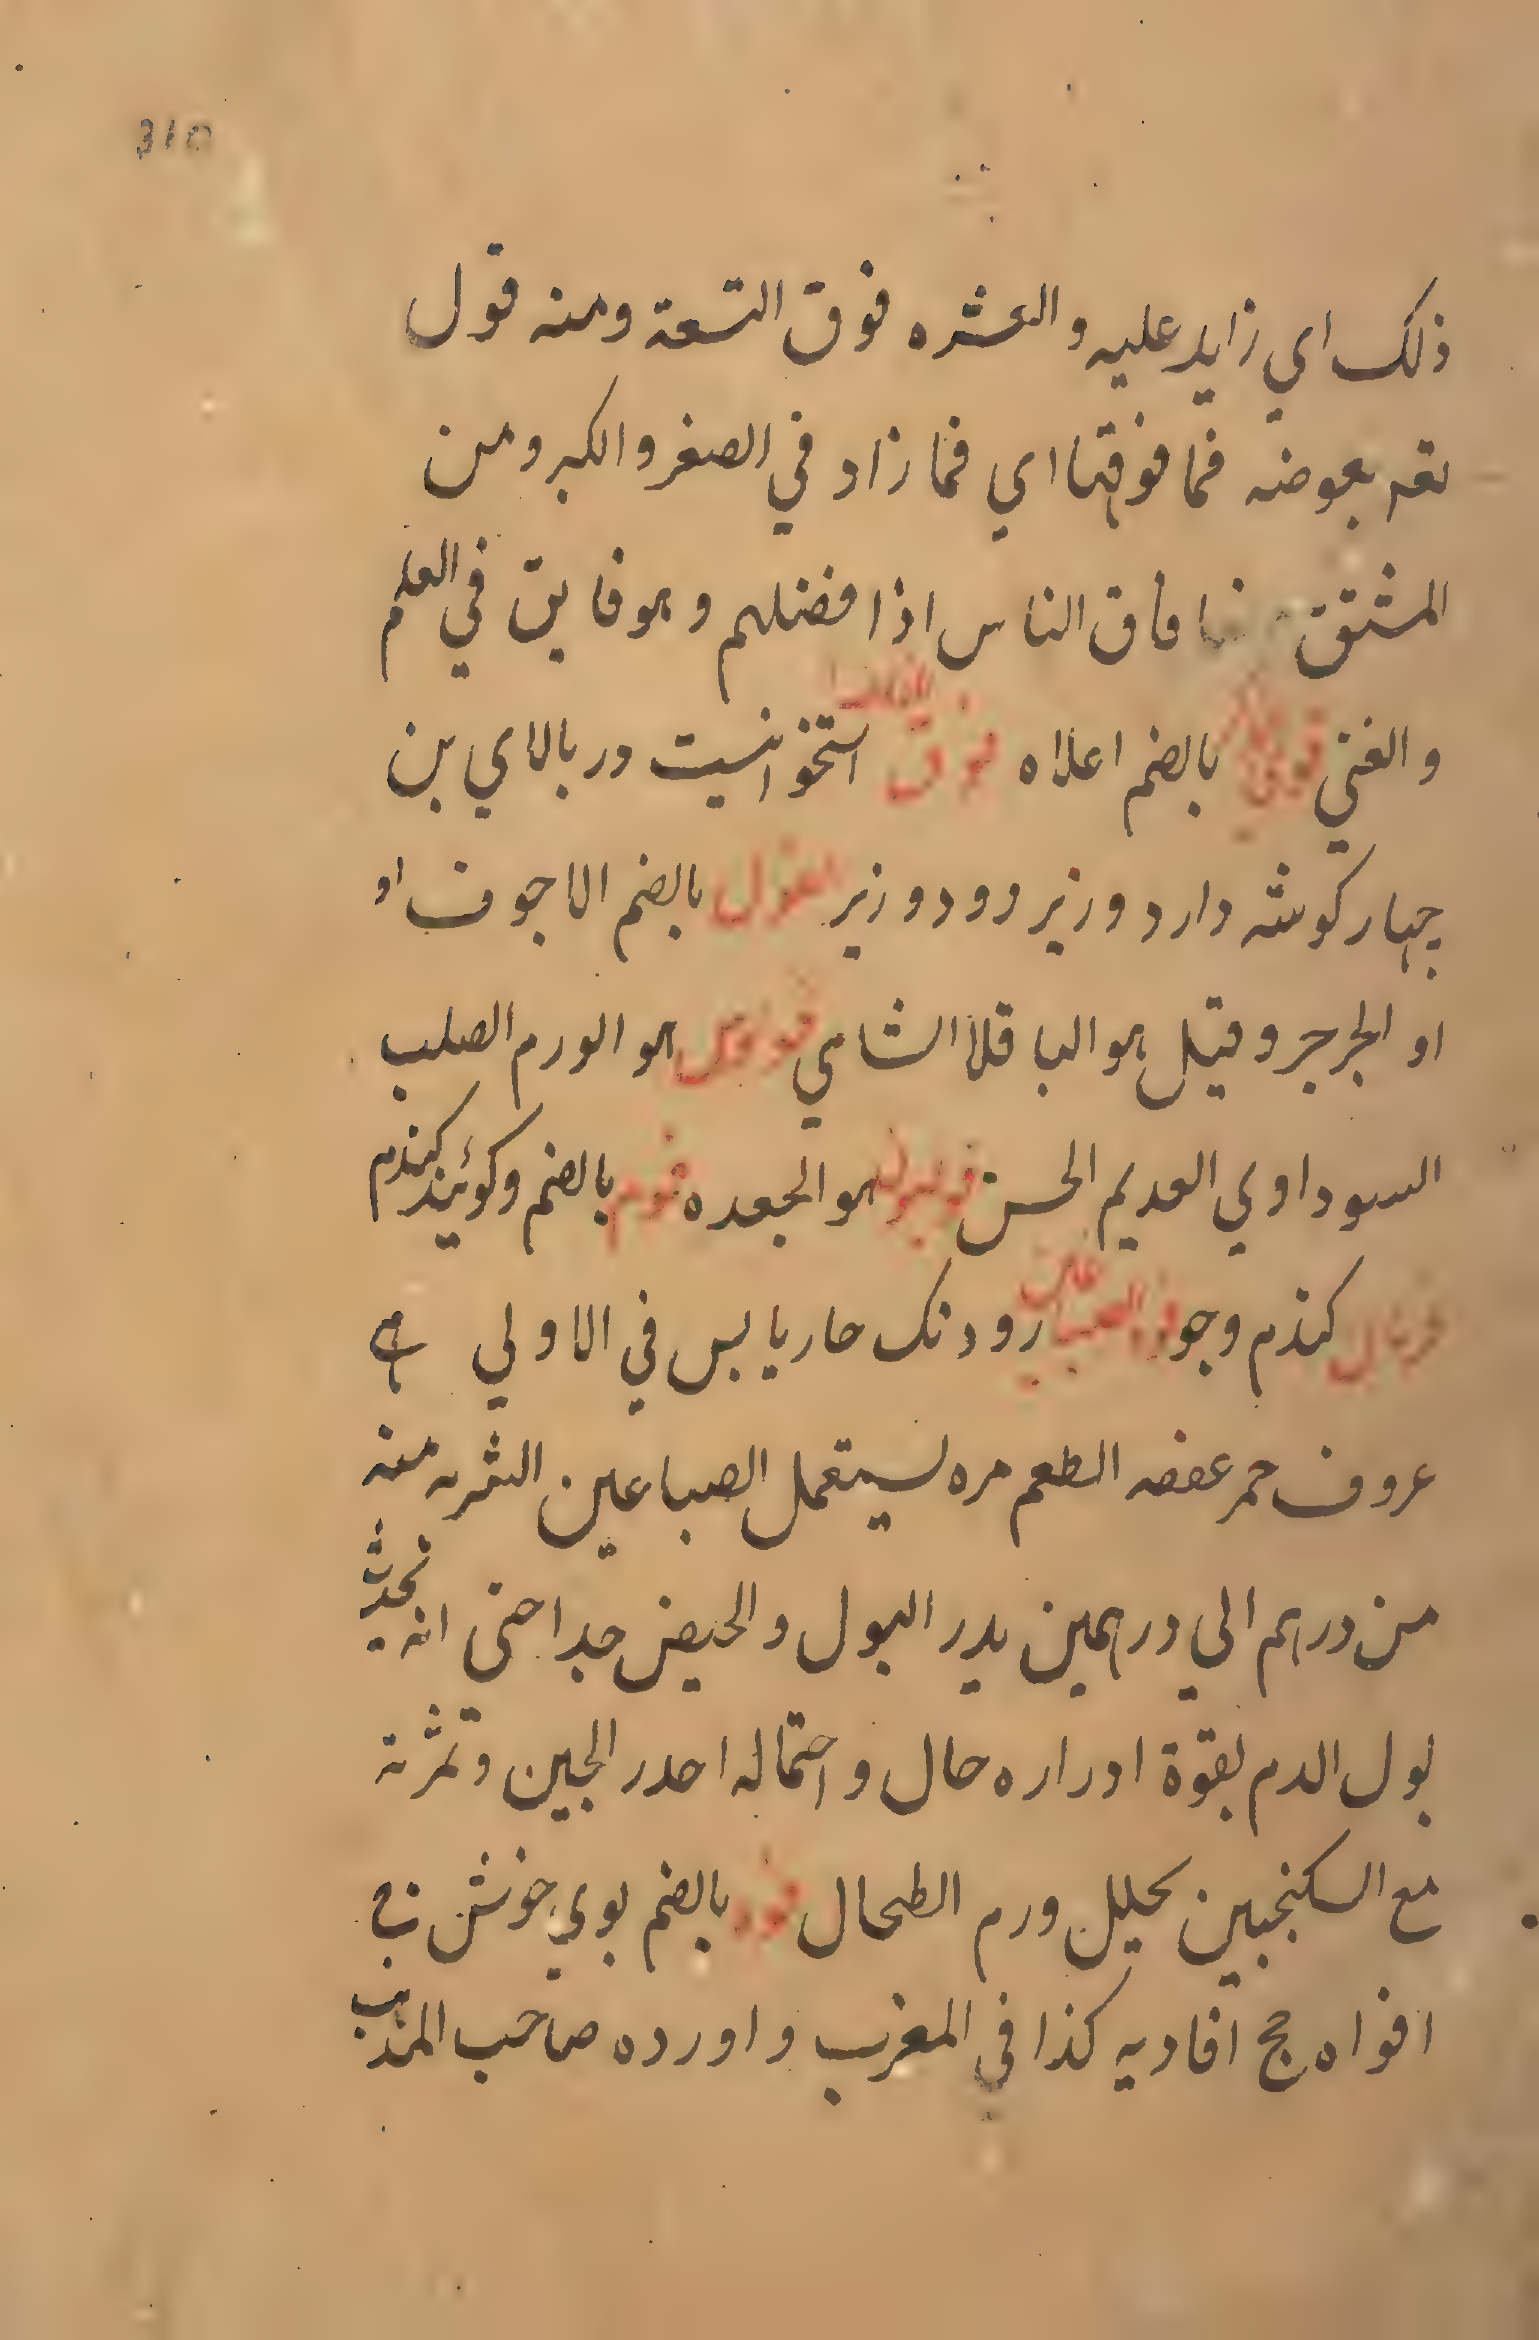 310
ذلك اي زايد عليه والعشره فوق التسعة ومنه قول
بعوضه فما فوقها اي فما زاد في الصغر والكبر ومن
المشتق فاق الناس اذا فضلهم وهو فايق في العلم
والغني بالضم اعلاه فوق استخوانيست در بالاي بن
چهار كوشه دارد وزير وود وزير الفول بالضم الاجوف او
او الجرجر وقيل هو الباقلا الشامي هو الورم الصلب
السوداوي العديم الحس هو الجعده فوم بالضم وكوئيد كندم
كندم وجو رودنك حار يابس في الاولي
عروف حمر عفصه الطعم مره ليستعمل الصباعين الثمربه منه
من درهم الي درهمين يدر البول والحيض جدا حتى انه تحدث
بول الدم بقوة ادراره حال واحتماله احدر الجين وثمرته
مع السكنجبين يحلل ورم الطحال فوه بالضم بوي خوش ج
افواه جج افاديه كذا في المغرب واورده صاحب المذهب